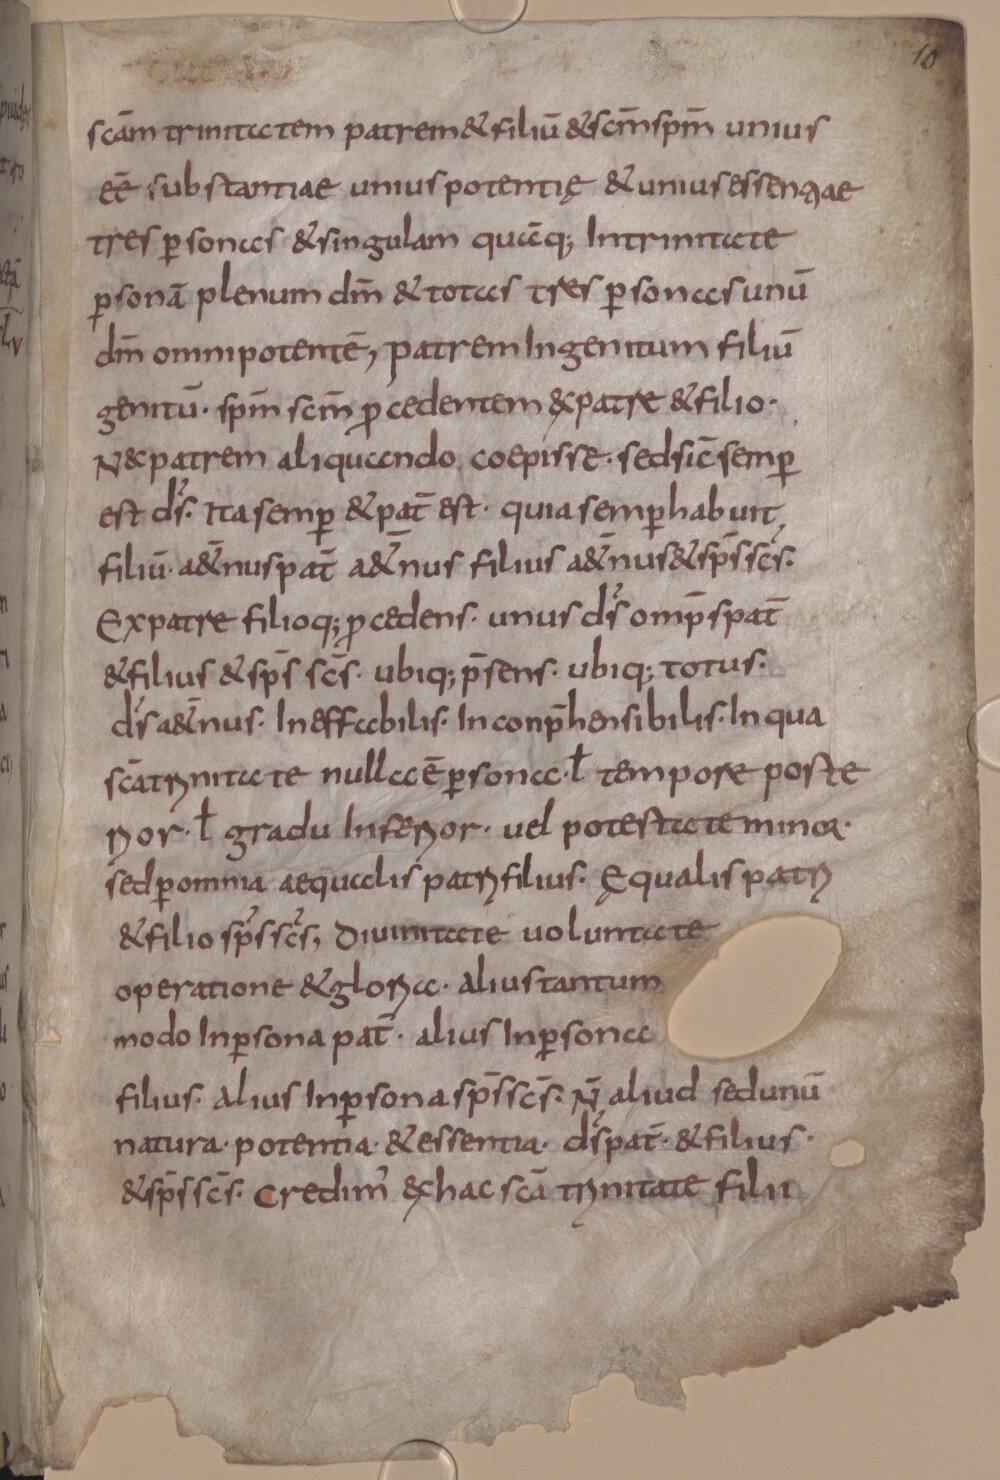 10
scām trinitatem patrem & filiū & scm̄ spm̄ unius
eē substantiae unius potentię & unius essentiae
tres ꝑsonas & singulam quāq; In trinitate
ꝑsonā plenum dm̄ & totas tres ꝑsonas unū
dm̄ omnipotentē, patrem Ingenitum filiū
genitū· spm̄ scm̄ ꝓcedentem ex patre & filio·
N& patrem aliquando coepisse· sed sic̄ semꝑ
est ds̄· Ita semꝑ & pat̄ est· quia semꝑ habuit
filiū· a&̄nus pat̄ a&̄nus filius a&̄nus & sps̄ scs̄·
Ex patre filioq; ꝓcedens· unus ds̄ omp̄s pat̄
& filius & sps̄ scs̄· ubiq; p̄sens· ubiq; totus·
ds̄ a&̄nus· Ineffabilis· Inconp̄hensibilis· In qua
scā trinitate nulla ē ꝑsona· ł tempore poste
rior· ł gradu Inferior· uel potestate minor·
sed ꝑ omnia aequalis patri filius· Ęqualis patri
& filio sps̄ scs̄, Diuinitate uoluntate
operatione & gloria· alius tantum
modo In ꝑsona pat̄· alius In ꝑsona
filius· Alius In ꝑsona sps̄ scs̄· N̄ aliud sed unū
natura· potentia· & essentia· ds̄ pat̄· & filius·
& sps̄ scs̄· Credim᾽ ex hac scā trinitate filii